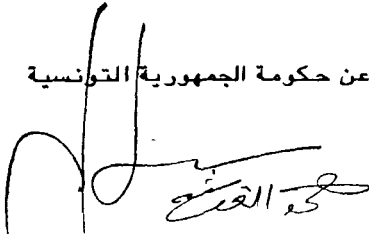 عن حكومة الجمهورية التونسية